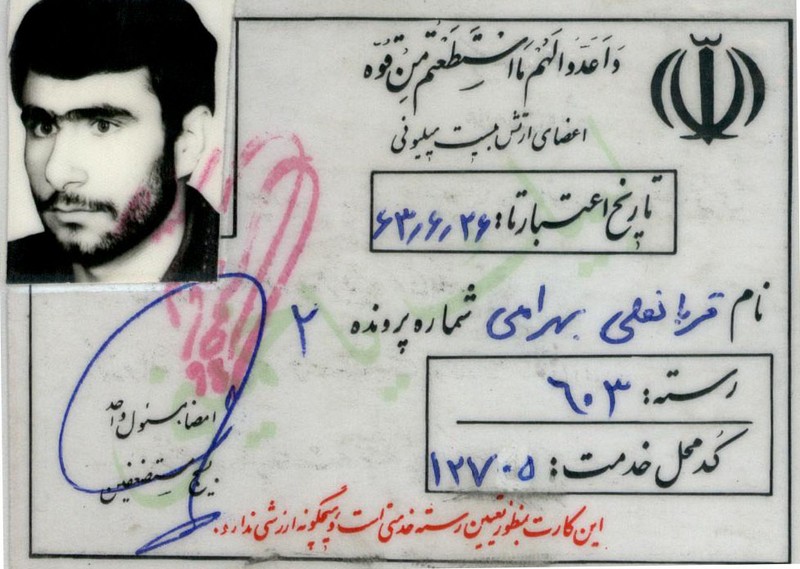 وَاَعَدُّوا لَهُم مَا اسْتَطَعْتُم مِنْ قُوَّه
اعضای ارتش بیست میلیونی
تاریخ اعتبار تا: ۶۳٫۶٫۲۶
نام قربانعلی بهرامی شماره پرونده ۲
رسته: ۶۰۳
کُد محل خدمت: ۱۲۷۰۵
امضاء مسئول واحد
بسیج مستضعفین
این کارت بمنظور تعیین رسته خدمتی است و هیچگونه ارزشی ندارد.